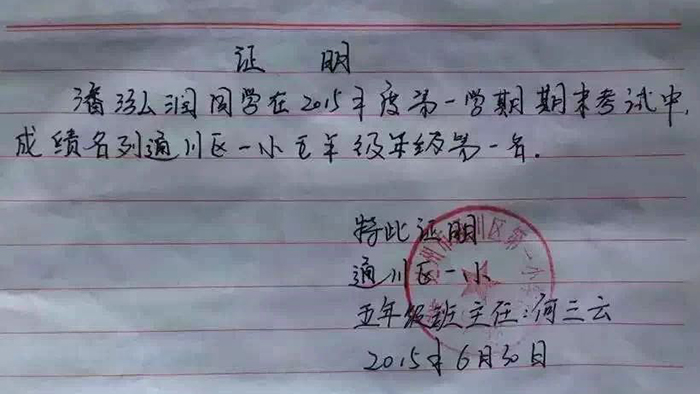 证 明
潘弘润同学在2015年度第一学期期末考试中,
成绩名列通川区一小五年级年级第一名.
特此证明
通川区一小
五年级班主任:何三云
2015年6月30日